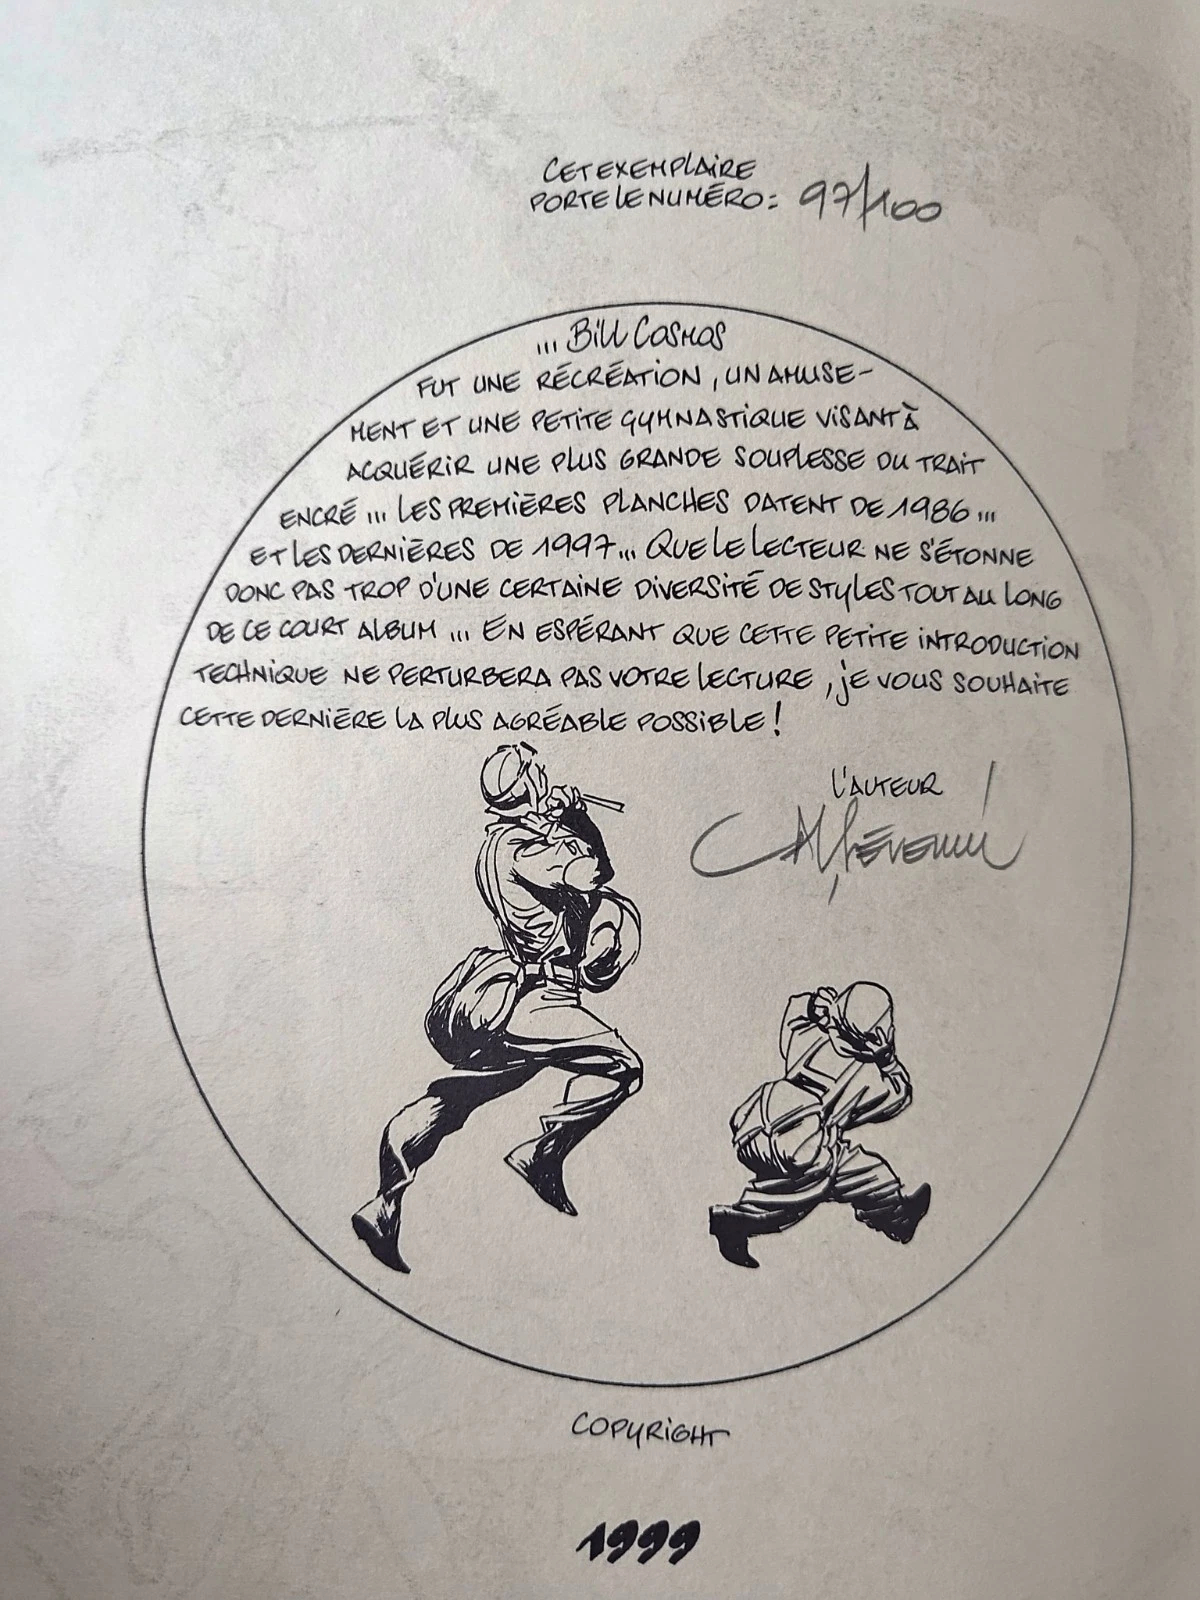 CET EXEMPLAIRE
PORTE LE NUMÉRO : 97/100
... BiLL COSMOS
FUT UNE RÉCRÉATION, UN AMUSE-
MENT ET UNE PETITE GYMNASTIQUE VISANT À
ACQUÉRIR UNE PLUS GRANDE SOUPLESSE DU TRAIT
ENCRÉ ... LES PREMIÈRES PLANCHES DATENT DE 1986 ...
ET LES DERNIÈRES DE 1997... QUE LE LECTEUR NE S'ÉTONNE
DONC PAS TROP D'UNE CERTAINE DIVERSITÉ DE STYLES TOUT AU LONG
DE CE COURT ALBUM ... EN ESPÉRANT QUE CETTE PETITE INTRODUCTION
TECHNIQUE NE PERTURBERA PAS VOTRE LECTURE, JE VOUS SOUHAITE
CETTE DERNIÈRE LA PLUS AGRÉABLE POSSIBLE !
L'AUTEUR
COPYRIGHT
1999